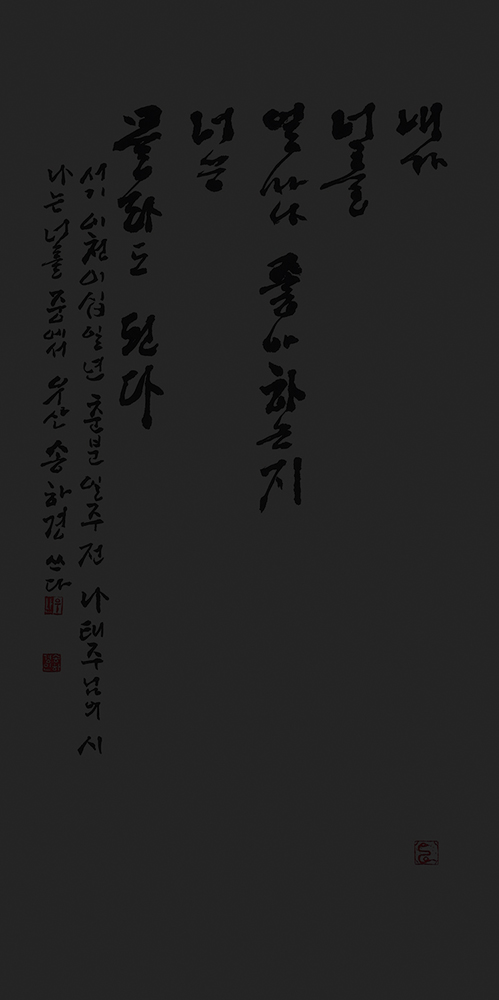 내가
너를
얼마나 좋아하는지
너는
몰라도 된다
서기 이천이십일년 춘분 일주 전 나태주님의 시
나는 너를 중에서 우산 송하경 쓰다